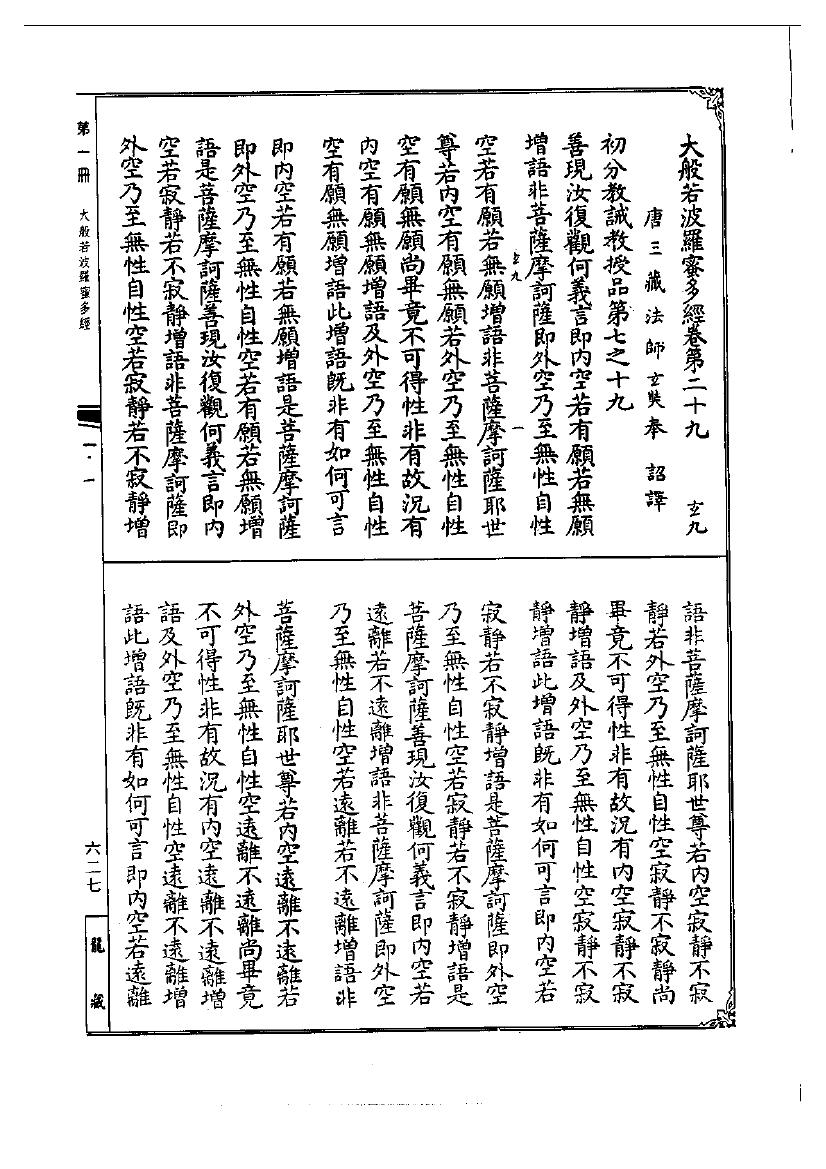 大般若波羅蜜多經卷第二十九 玄九
唐三藏法師玄奘奉 詔譯
初分教誡教授品第七之十九
善現汝復觀何義言即內空若有願若無願
增語非菩薩摩訶薩即外空乃至無性自性
玄九 一
空若有願若無願增語非菩薩摩訶薩耶世
尊若內空有願無願若外空乃至無性自性
空有願無願尚畢竟不可得性非有故況有
內空有願無願增語及外空乃至無性自性
空有願無願增語此增語既非有如何可言
即內空若有願若無願增語是菩薩摩訶薩
即外空乃至無性自性空若有願若無願增
語是菩薩摩訶薩善現汝復觀何義言即內
空若寂靜若不寂靜增語非菩薩摩訶薩即
外空乃至無性自性空若寂靜若不寂靜增
語非菩薩摩訶薩耶世尊若內空寂靜不寂
靜若外空乃至無性自性空寂靜不寂靜尚
畢竟不可得性非有故況有內空寂靜不寂
靜增語及外空乃至無性自性空寂靜不寂
靜增語此增語既非有如何可言即內空若
寂靜若不寂靜增語是菩薩摩訶薩即外空
乃至無性自性空若寂靜若不寂靜增語是
菩薩摩訶薩善現汝復觀何義言即內空若
遠離若不遠離增語非菩薩摩訶薩即外空
乃至無性自性空若遠離若不遠離增語非
菩薩摩訶薩耶世尊若內空遠離不遠離若
外空乃至無性自性空遠離不遠離尚畢竟
不可得性非有故況有內空遠離不遠離增
語及外空乃至無性自性空遠離不遠離增
語此增語既非有如何可言即內空若遠離
第一冊 大般若波羅蜜多經
一·一
六二七
龍藏